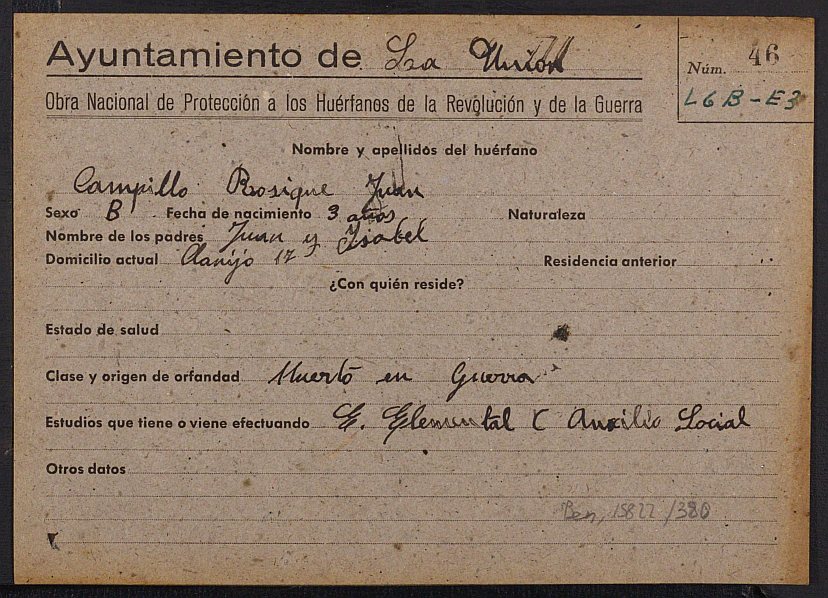 Ayuntamiento de La Union
Núm. 46
L6B-E3
Obra Nacional de Protección a los Huérfanos de la Revolución y de la Guerra
Nombre y apellidos del huérfano
Campillo Rosique Juan
Sexo B Fecha de nacimiento 3 años Naturaleza
Nombre de los padres Juan y Isabel
Domicilio actual Clavijo 17 Residencia anterior
¿Con quién reside?
Estado de salud
Clase y origen de orfandad Muerto en Guerra
Estudios que tiene o viene efectuando E. Elemental C Auxilio Social
Otros datos
Ben, 15822/380